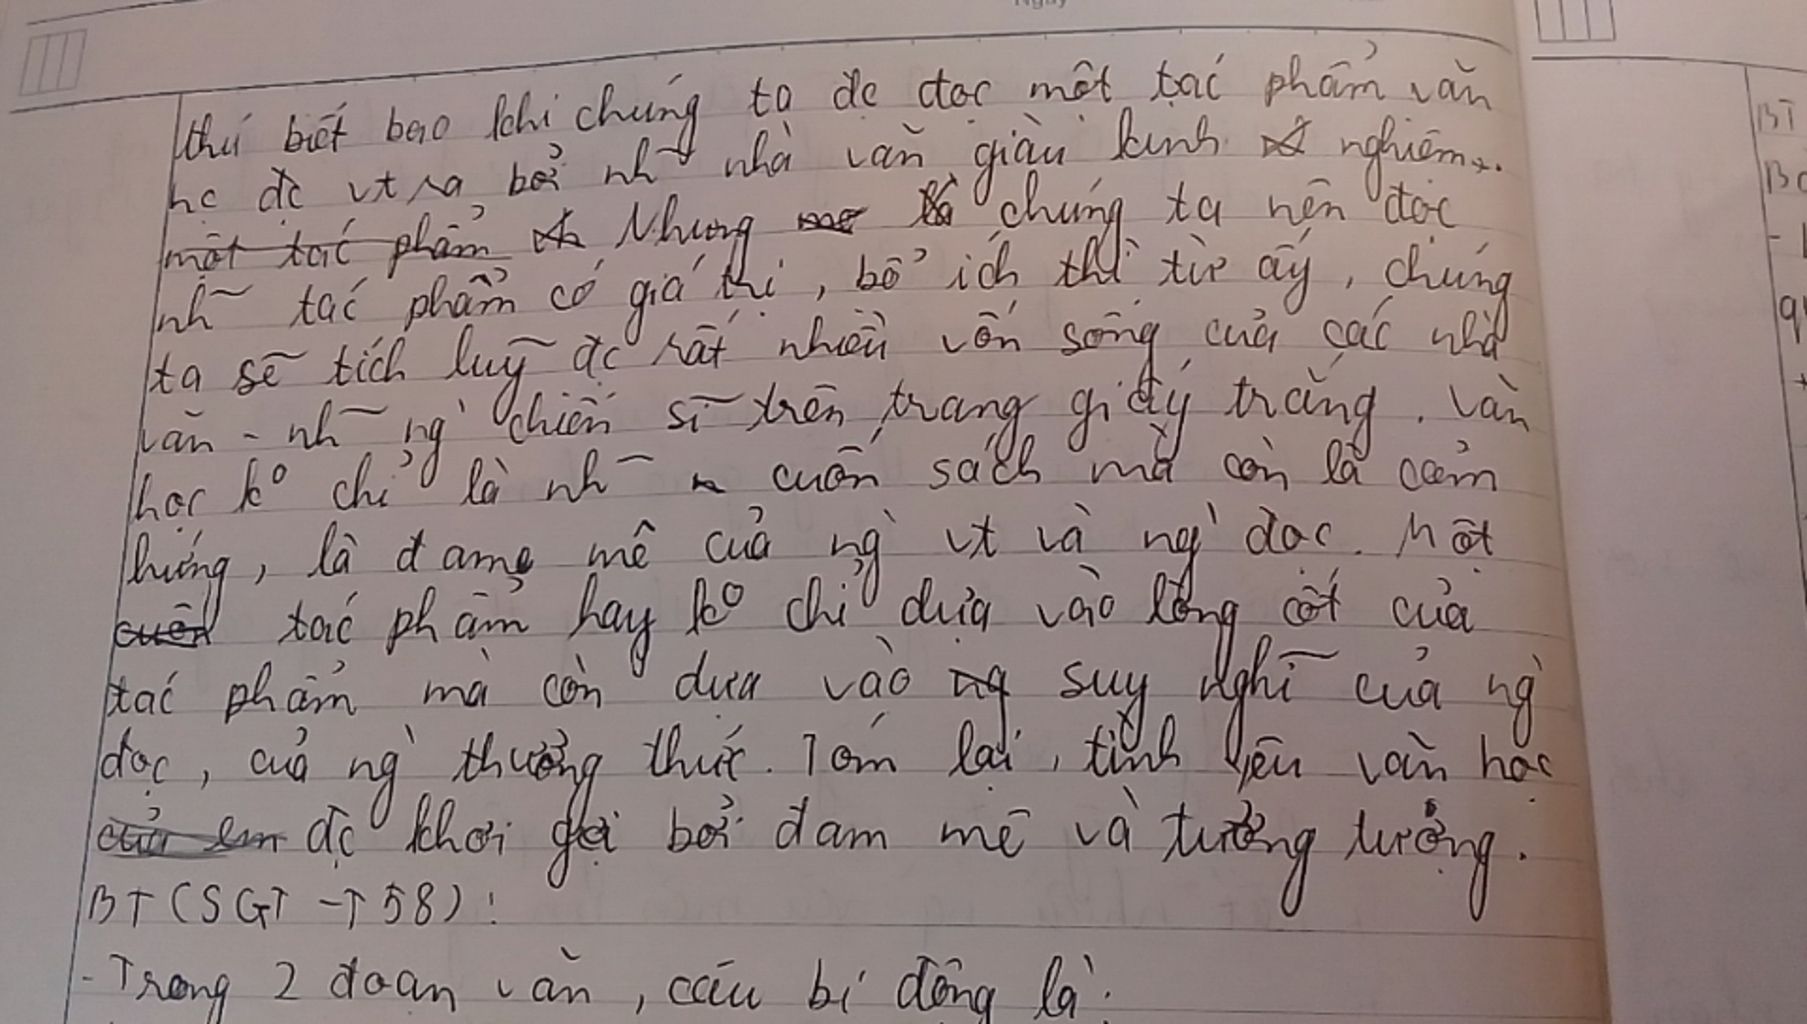 thú biết bao khi chúng ta đc đọc một tác phẩm văn
hc đc vt ra bởi nh~ nhà văn giàu kinh nghiêm.
một tác phẩm Nhưng chúng ta nên đọc
nh~ tác phẩm có giá thị, bổ ích thì từ ấy, chúng
ta sẽ tích luỹ đc rất nhiều vốn sống của các nhà
văn - nh~ ng` chiến sĩ trên trang giấy trắng. Văn
học ko chỉ là nh~ cuốn sách mà còn là cảm
hứng, là đam mê của ng` vt và ng` đọc. Một
cuốn tác phẩm hay ko chỉ dựa vào lòng cốt của
tác phẩm mà còn dựa vào ng suy nghĩ của ng`
đọc, của ng` thưởng thức. Tóm lại, tình yêu văn học
của em đc khơi gợi bởi đam mê và tưởng tượng.
BT (SGT - T58):
- Trong 2 đoạn văn, câu bị động là:
BT